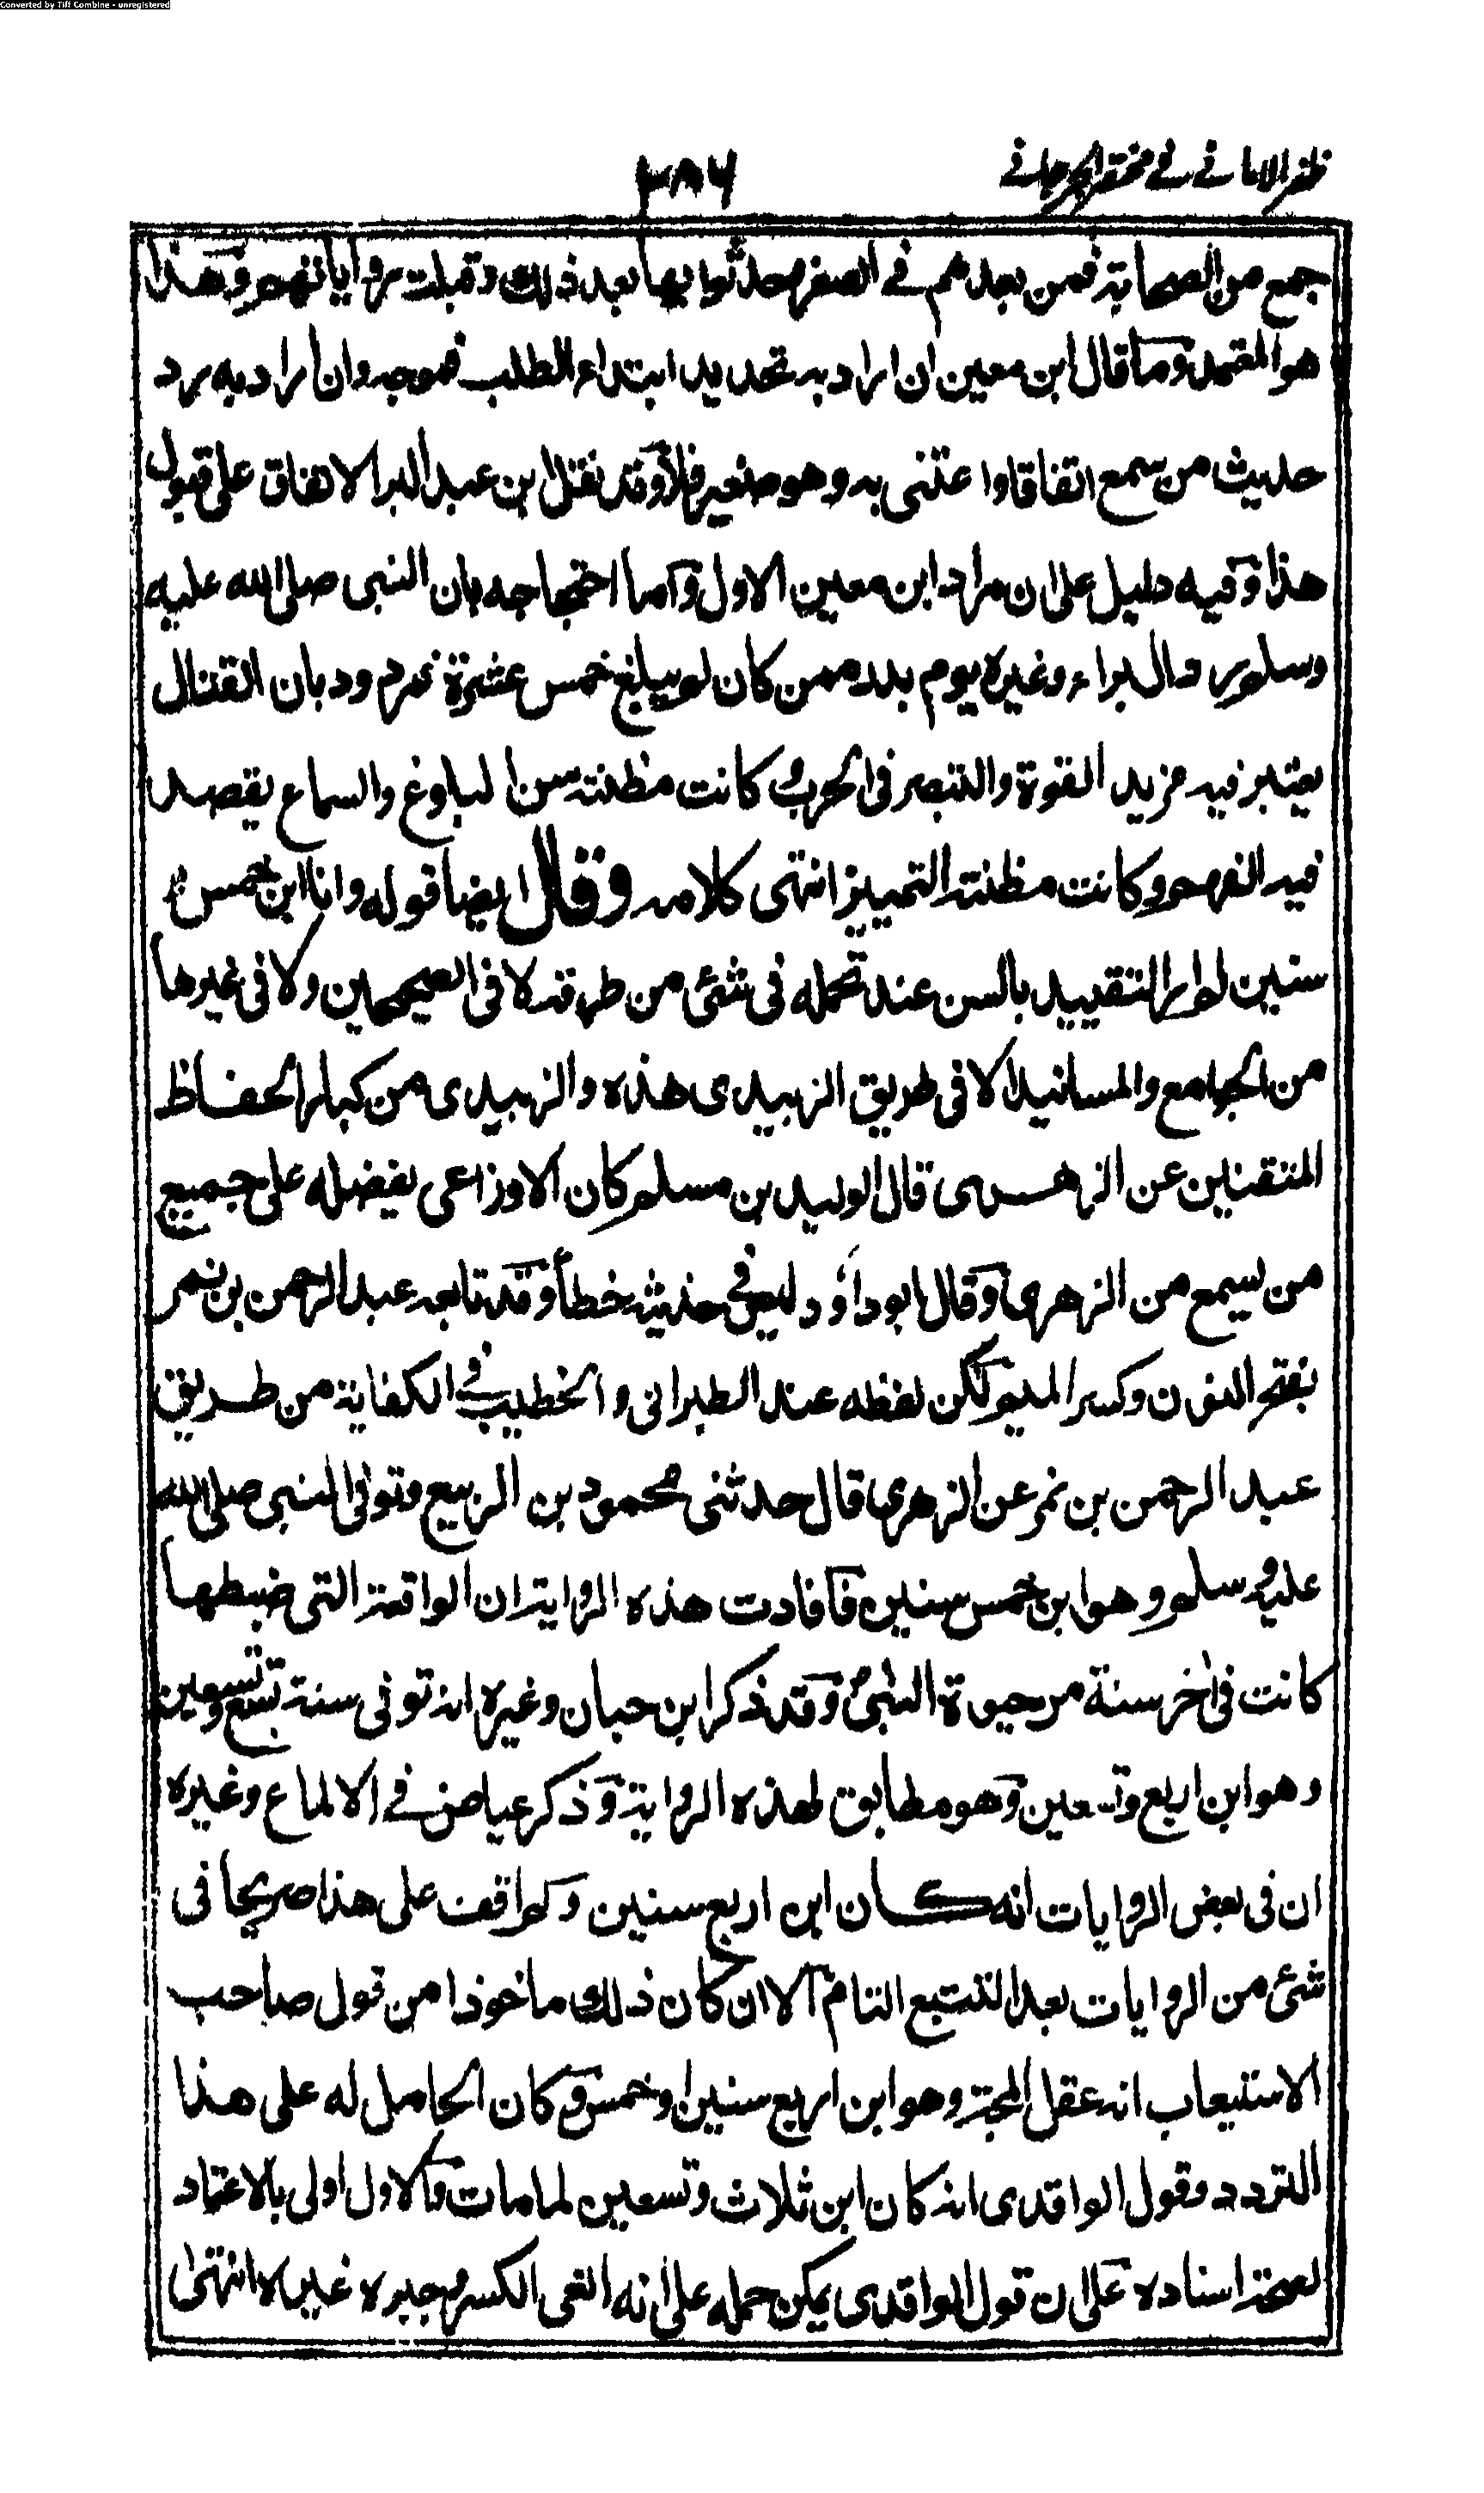 Converted by Tiff Combine - unregistered
ظفر الاماني في مختصر الجرجاني
٣٨٦
جمع من الصحابة فمن بعدهم في الصغر حدثوا بها بعد ذلك وقبلت رواياتهم وهذا
هو المعتمد وما قال ابن معين ان اراد به تحديد ابتداء الطلب فموجه وان اراد به رد
حديث من سمع اتفاقا او اعتنى به وهو صغير فلا وقد نقل ابن عبد البر الاتفاق على قبول
هذا وفيه دليل على ان مراد ابن معين الاول واما احتجاجه بان النبى صلى الله عليه
وسلم رد البراء وغيره يوم بدر ممن كان لم يبلغ خمس عشرة فمردود بان القتال
يعتبر فيه مزيد القوة والتبصر فى الحرب كانت مظنته سن البلوغ والسماع يقصد
فيه الفهم وكانت مظنته التمييز انتهى كلامه وقال ايضا قوله وانا ابن خمس
سنين لم ار التقييد بالسن عند تحمله فى شئ من طرقه لا فى الصحيحين ولا فى غيرها
من الجوامع والمسانيد الا فى طريق الزبيدى هذه والزبيدى من كبار الحفاظ
المتقنين عن الزهرى قال الوليد بن مسلم كان الاوزاعى يفضله على جميع
من سمع من الزهرى وقال ابو داؤد ليس فى حديثه خطأ وقد تابعه عبد الرحمن بن نمر
بفتح النون وكسر الميم لكن لفظه عند الطبرانى والخطيب فى الكفاية من طريق
عبد الرحمن بن نمر عن الزهرى قال حدثنى محمود بن الربيع وتوفى النبى صلى الله
عليه وسلم وهو ابن خمس سنين فافادت هذه الرواية ان الواقعة التى ضبطها
كانت فى اخر سنة من حيوة النبى وقد ذكر ابن حبان وغيره انه توفى سنة تسع وتسعين
وهو ابن اربع وتسعين وهو مطابق لهذه الرواية وذكر عياض في الالماع وغيره
ان فى بعض الروايات انه كان ابن اربع سنين ولم اقف على هذا صريحا فى
شئ من الروايات بعد التتبع التام الا ان كان ذلك ماخوذا من قول صاحب
الاستيعاب انه عقل المجة وهو ابن اربع سنين او خمس وكان الحامل له على هذا
التردد وقول الواقدى انه كان ابن ثلاث وتسعين لما مات والاول اولى بالاعتماد
لصحة اسناده على ان قول الواقدى يمكن حمله على انه القى الكسر وجبره غيره انتهى